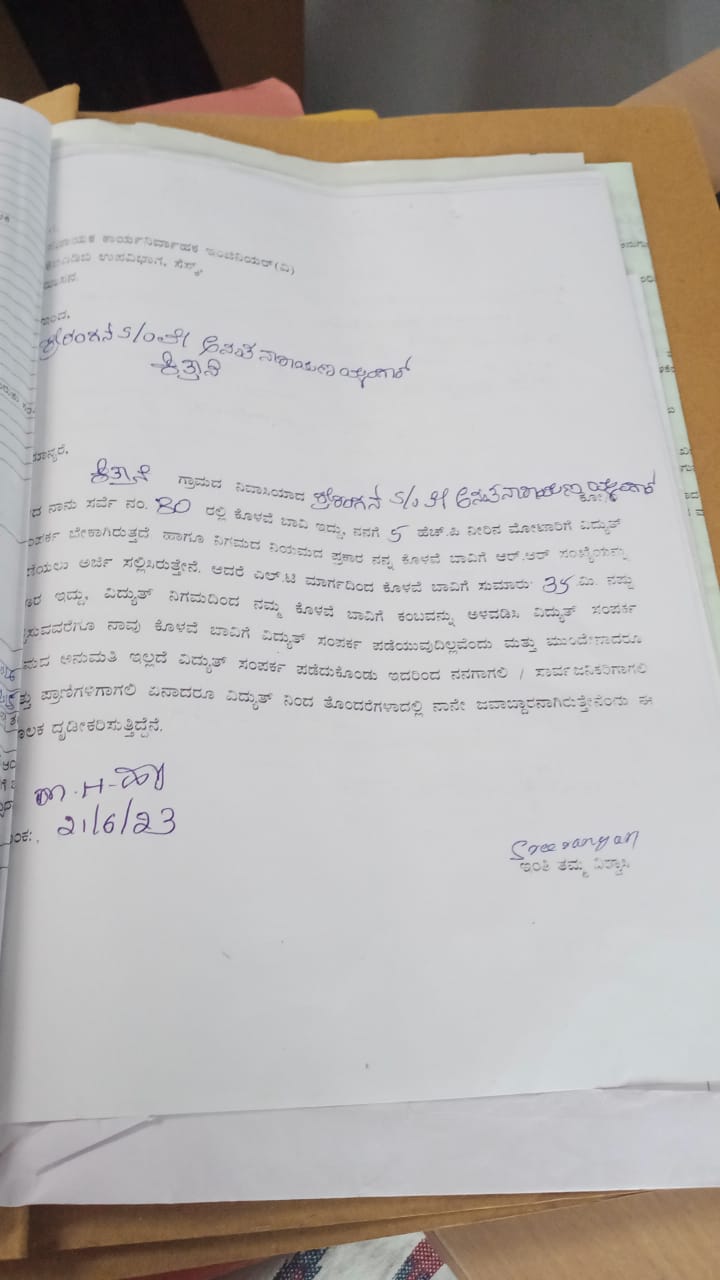 ಕಾರ್ಯನಿರ್ವಾಹಕ ಇಂಜಿನಿಯರ್(ವಿ)
ಉಪವಿಭಾಗ, ಸೆಸ್ಕ್,
ಶ್ರೀರಂಗನ S/o ಲೇ
ಕಿತ್ತಾನೆ
ಕಿತ್ತಾನೆ ಗ್ರಾಮದ ನಿವಾಸಿಯಾದ ಶ್ರೀರಂಗನ S/o ಲೇ
ನಾನು ಸರ್ವೆ ನಂ. 80 ರಲ್ಲಿ ಕೊಳವೆ ಬಾವಿ ಇದ್ದು, ನನಗೆ 5 ಹೆಚ್.ಪಿ ನೀರಿನ ಮೋಟಾರಿಗೆ ವಿದ್ಯುತ್
ಬೇಕಾಗಿರುತ್ತದೆ. ಹಾಗೂ ನಿಗಮದ ನಿಯಮದ ಪ್ರಕಾರ ನನ್ನ ಕೊಳವೆ ಬಾವಿಗೆ ಆರ್.ಆರ್ ಸಂಖ್ಯೆಯನ್ನು
ಅರ್ಜಿ ಸಲ್ಲಿಸಿರುತ್ತೇನೆ. ಆದರೆ ಎಲ್.ಟಿ ಮಾರ್ಗದಿಂದ ಕೊಳವೆ ಬಾವಿಗೆ ಸುಮಾರು 35 ಮಿ. ನಷ್ಟು
ಇದ್ದು, ವಿದ್ಯುತ್ ನಿಗಮದಿಂದ ನಮ್ಮ ಕೊಳವೆ ಬಾವಿಗೆ ಕಂಬವನ್ನು ಅಳವಡಿಸಿ ವಿದ್ಯುತ್ ಸಂಪರ್ಕ
ನಾವು ಕೊಳವೆ ಬಾವಿಗೆ ವಿದ್ಯುತ್ ಸಂಪರ್ಕ ಪಡೆಯುವುದಿಲ್ಲವೆಂದು ಮತ್ತು ಮುಂದೇನಾದರೂ
ಅನುಮತಿ ಇಲ್ಲದೆ ವಿದ್ಯುತ್ ಸಂಪರ್ಕ ಪಡೆದುಕೊಂಡು ಇದರಿಂದ ನನಗಾಗಲಿ / ಸಾರ್ವಜನಿಕರಿಗಾಗಲಿ
ಪ್ರಾಣಿಗಳಿಗಾಗಲಿ ಏನಾದರೂ ವಿದ್ಯುತ್ ನಿಂದ ತೊಂದರೆಗಳಾದಲ್ಲಿ ನಾನೇ ಜವಾಬ್ದಾರನಾಗಿರುತ್ತೇನೆಂದು ಈ
ದೃಡೀಕರಿಸುತ್ತಿದ್ದೆನೆ.
21/6/23
Sreerangan
ಇಂತಿ ತಮ್ಮ ವಿಶ್ವಾಸಿ